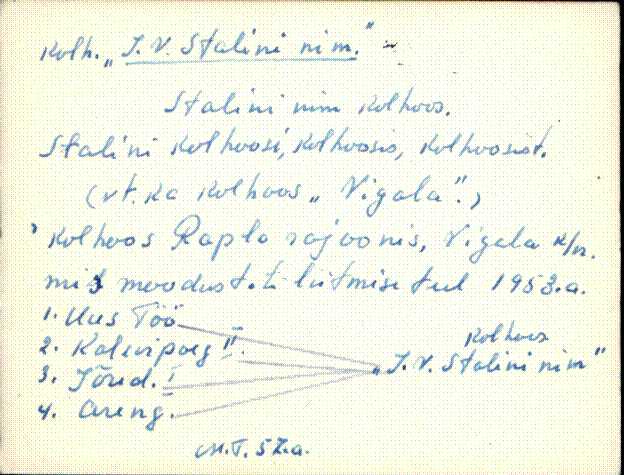 Kolh. „J. V. Stalini nim."
Stalini nim kolhoos.
Stalini kolhoosi, kolhoosis, kolhoosist.
(vt. ka kolhoos „Vigala".)
Kolhoos Rapla rajoonis, Vigala k/n.
mis moodust. ti liitmise teel 1953. a.
1. Uus Töö
2. Kalevipoeg II.
3. Jõud. I
4. Areng.
Kolhoos
„J. V. Stalini nim"
M.T. 57. a.